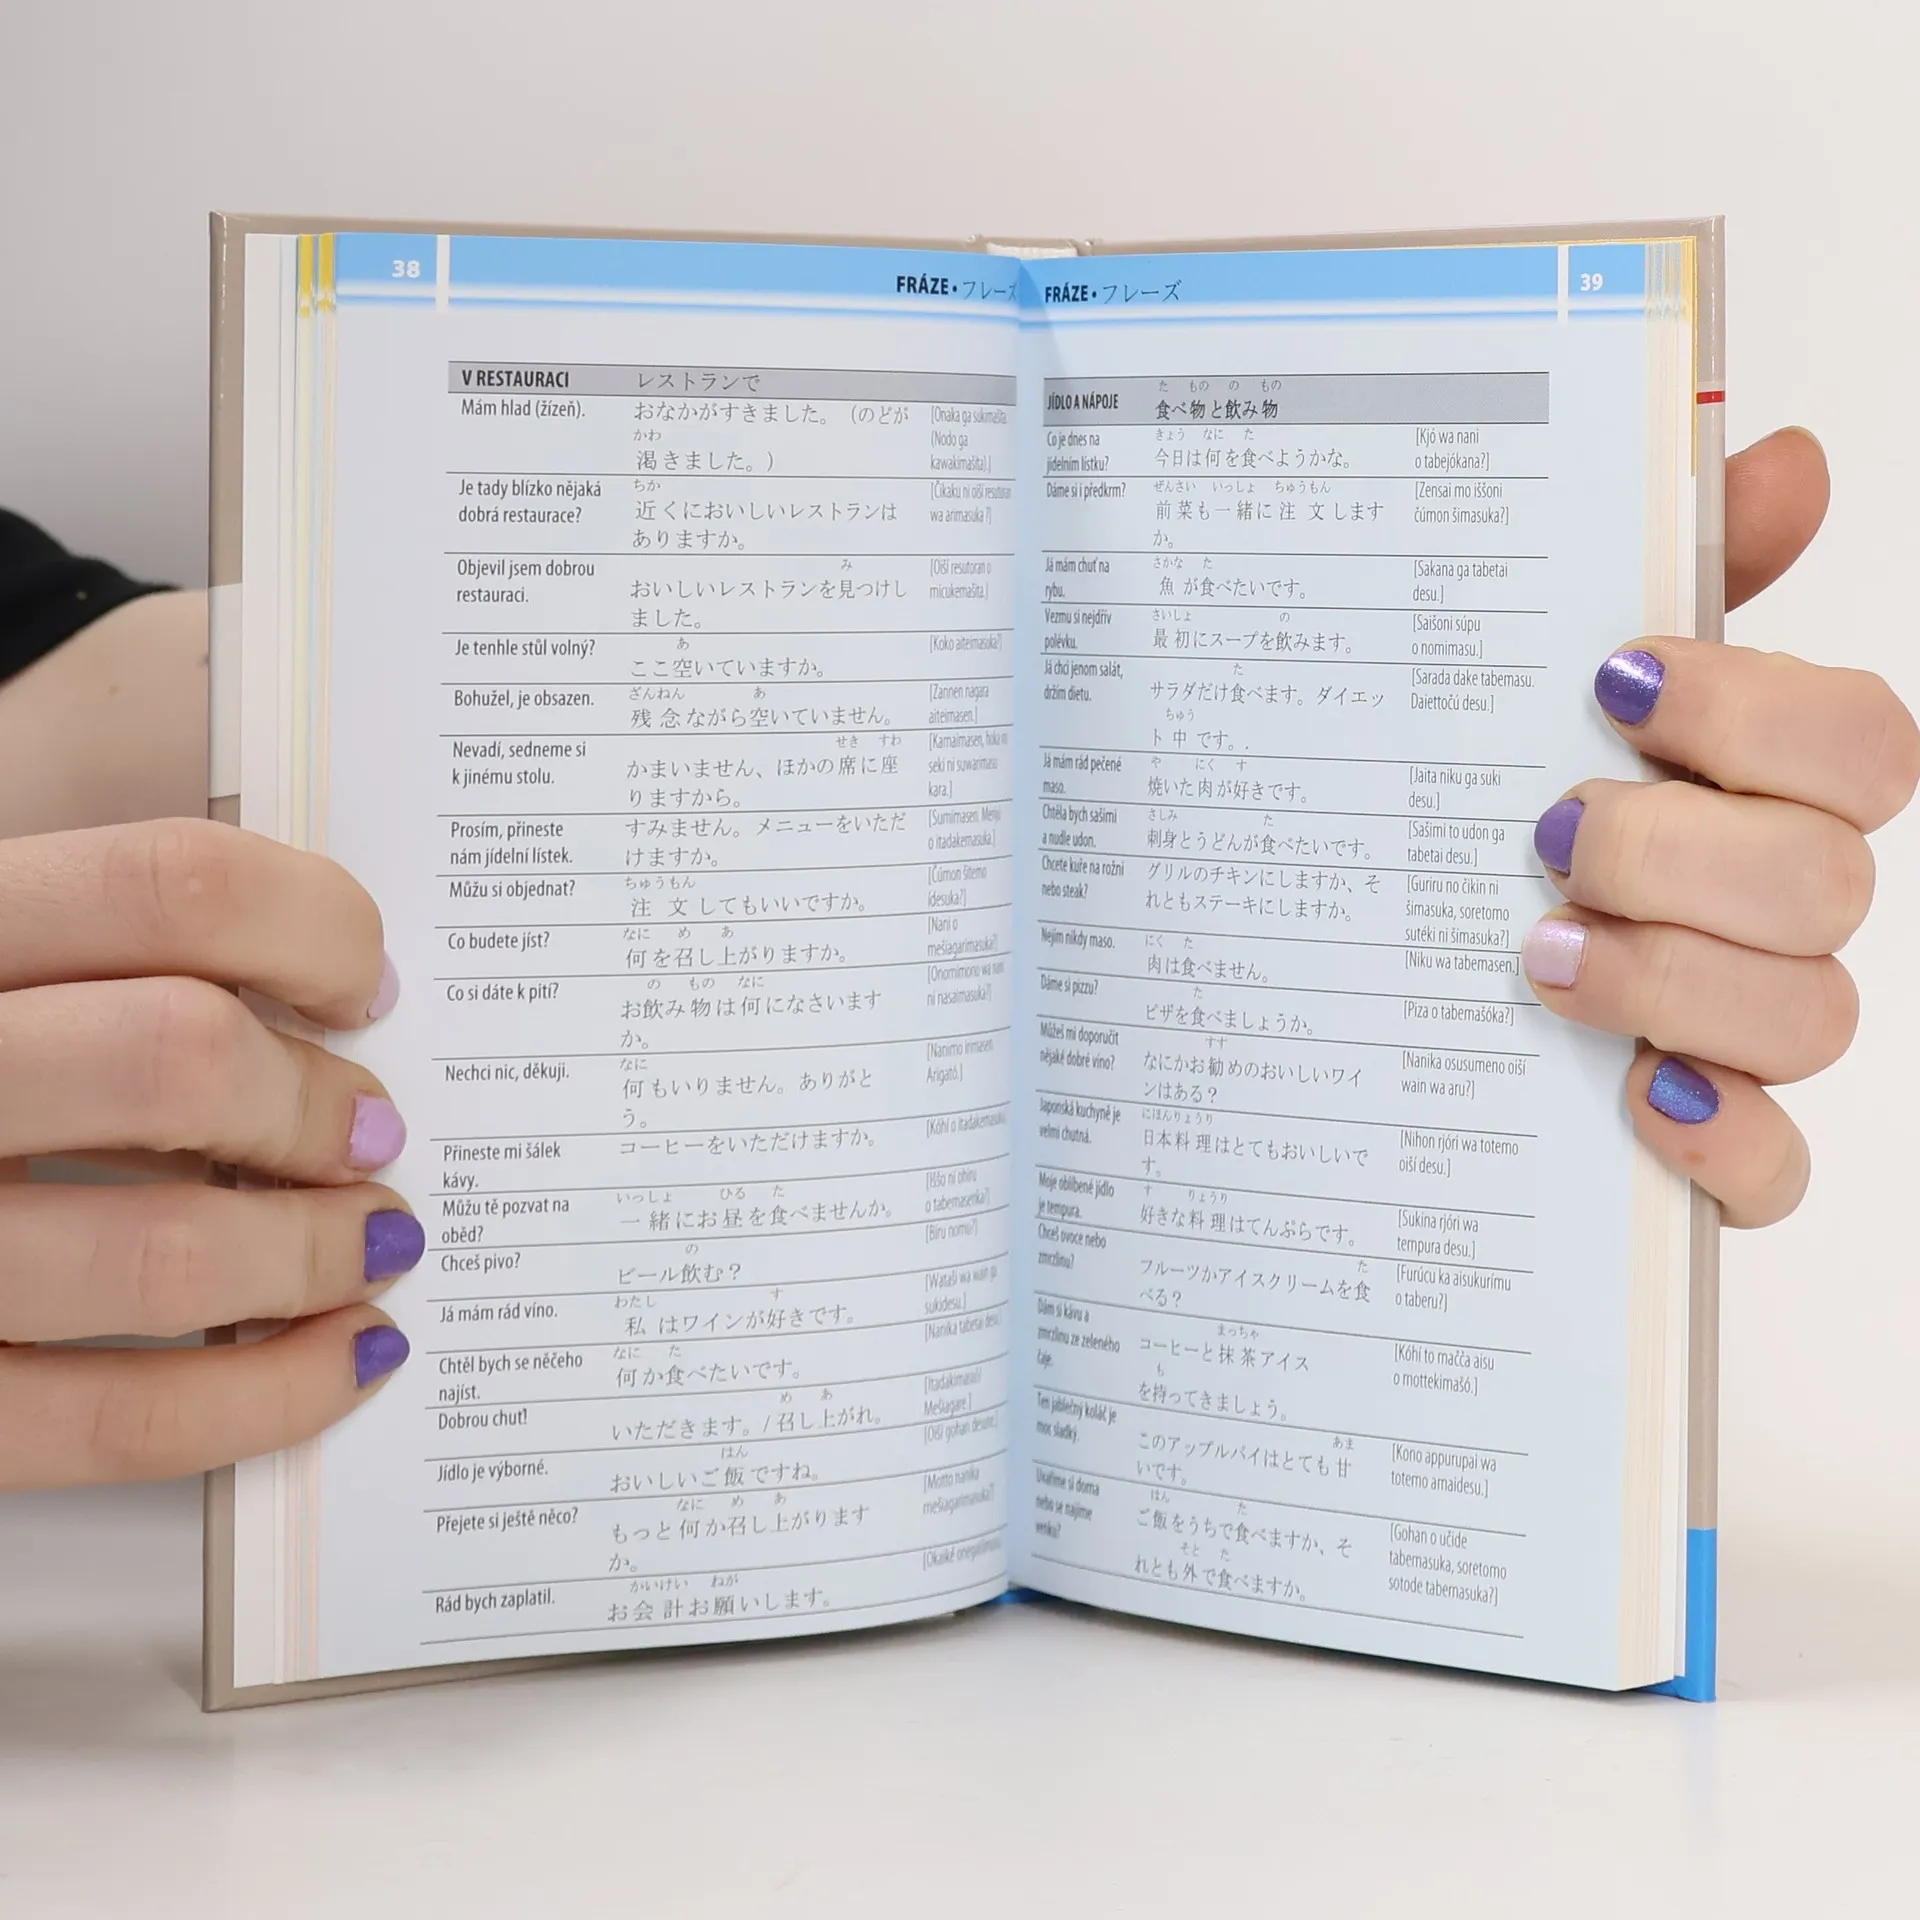 38
FRÁZE • フレーズ
V RESTAURACI レストランで
Mám hlad (žízeň). おなかがすきました。（のどが [Onaka ga sukimašita.
かわ (Nodo ga
渇きました。） kawakimašita).]
Je tady blízko nějaká ちか [Čikaku ni oiší resutoran
dobrá restaurace? 近くにおいしいレストランは wa arimasuka?]
ありますか。
Objevil jsem dobrou み [Oiší resutoran o
restauraci. おいしいレストランを見つけし micukemašita.]
ました。
Je tenhle stůl volný? あ [Koko aiteimasuka?]
ここ空いていますか。
Bohužel, je obsazen. ざんねん あ [Zannen nagara
残念ながら空いていません。 aiteimasen.]
Nevadí, sedneme si せき すわ [Kamaimasen, hoka no
k jinému stolu. かまいません、ほかの席に座 seki ni suwarimasu
りますから。 kara.]
Prosím, přineste すみません。メニューをいただ [Sumimasen. Menjú
nám jídelní lístek. けますか。 o itadakemasuka.]
Můžu si objednat? ちゅうもん [Čúmon šitemo
注文してもいいですか。 ídesuka?]
Co budete jíst? なに め あ [Nani o
何を召し上がりますか。 mešiagarimasuka?]
Co si dáte k pití? の もの なに [Onomimono wa nani
お飲み物は何になさいます ni nasaimasuka?]
か。
Nechci nic, děkuji. なに [Nanimo irimasen.
何もいりません。ありがと Arigató.]
う。
Přineste mi šálek コーヒーをいただけますか。 [Kóhí o itadakemasuka.
kávy.
Můžu tě pozvat na いっしょ ひる た [Iššo ni ohiru
oběd? 一緒にお昼を食べませんか。 o tabemasenka?]
Chceš pivo? の [Bíru nomu?]
ビール飲む？
Já mám rád víno. わたし す [Wataši wa wain ga
私はワインが好きです。 sukidesu.]
Chtěl bych se něčeho なに た [Nanika tabetai desu.
najíst. 何か食べたいです。
Dobrou chuť! め あ [Itadakimasu!/
いただきます。/召し上がれ。 Mešiagare.]
Jídlo je výborné. はん [Oiší gohan desune.]
おいしいご飯ですね。
Přejete si ještě něco? なに め あ [Motto nanika
もっと何か召し上がります mešiagarimasuka?]
か。
Rád bych zaplatil. かいけい ねが [Okaikei onegaišimasu.
お会計お願いします。
FRÁZE • フレーズ
39
た もの の もの
JÍDLO A NÁPOJE 食べ物と飲み物
Co je dnes na きょう なに た [Kjó wa nani
jídelním lístku? 今日は何を食べようかな。 o tabejókana?]
Dáme si i předkrm? ぜんさい いっしょ ちゅうもん [Zensai mo iššoni
前菜も一緒に注文します čúmon šimasuka?]
か。
Já mám chuť na さかな た [Sakana ga tabetai
rybu. 魚が食べたいです。 desu.]
Vezmu si nejdřív さいしょ の [Saišoni súpu
polévku. 最初にスープを飲みます。 o nomimasu.]
Já chci jenom salát, た [Sarada dake tabemasu.
držím dietu. サラダだけ食べます。ダイエッ Daiettočú desu.]
ちゅう
ト中です。.
Já mám rád pečené や にく す [Jaita niku ga suki
maso. 焼いた肉が好きです。 desu.]
Chtěla bych sašimi さしみ た [Sašimi to udon ga
a nudle udon. 刺身とうどんが食べたいです。 tabetai desu.]
Chcete kuře na rožni グリルのチキンにしますか、そ [Guriru no čikin ni
nebo steak? れともステーキにしますか。 šimasuka, soretomo
sutéki ni šimasuka?]
Nejím nikdy maso. にく た [Niku wa tabemasen.]
肉は食べません。
Dáme si pizzu? た [Piza o tabemašóka?]
ピザを食べましょうか。
Můžeš mi doporučit すす [Nanika osusumeno oiší
nějaké dobré víno? なにかお勧めのおいしいワイ wain wa aru?]
ンはある？
Japonská kuchyně je にほんりょうり [Nihon rjóri wa totemo
velmi chutná. 日本料理はとてもおいしいで oiší desu.]
す。
Moje oblíbené jídlo す りょうり [Sukina rjóri wa
je tempura. 好きな料理はてんぷらです。 tempura desu.]
Chceš ovoce nebo た [Furúcu ka aisukurímu
zmrzlinu? フルーツかアイスクリームを食 o taberu?]
べる？
Dám si kávu a まっちゃ [Kóhí to mačča aisu
zmrzlinu ze zeleného コーヒーと抹茶アイス o mottekimašó.]
čaje. も
を持ってきましょう。
Ten jablečný koláč je あま [Kono appurupai wa
moc sladký. このアップルパイはとても甘 totemo amaidesu.]
いです。
Uvaříme si doma はん た [Gohan o učide
nebo se najíme ご飯をうちで食べますか、そ tabemasuka, soretomo
venku? そと た sotode tabemasuka?]
れとも外で食べますか。